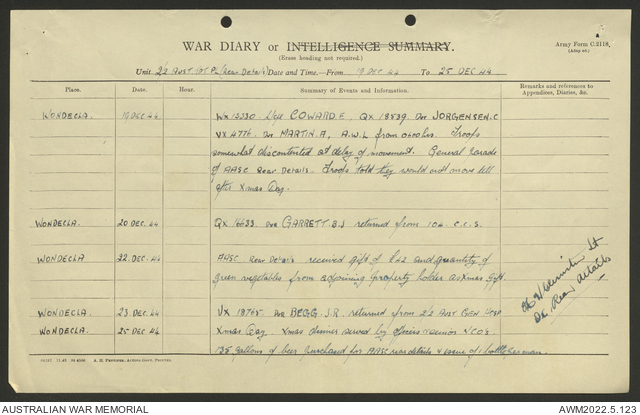 WAR DIARY or INTELLIGENCE SUMMARY.
(Erase heading not required.)
Army Form C.2118.
Unit (Rear Details) Date and Time.—From 19 DEC 44 To 25 DEC 44
Place. Date. Hour. Summary of Events and Information. Remarks and references to Appendices, Diaries, &c.
WONDECLA. 19 DEC 44 COWARD E, QX 18539 Dvr JORGENSEN. C
VX 4776 Dvr MARTIN. A, A.W.L from 0600 hrs. Troops
somewhat discontented at delay of movement. General Parade
of AASC Rear Details. Troops told they would not move till
after Xmas Day.
WONDECLA. 20 DEC. 44 QX 16633 GARRETT B.J returned from 104 C.C.S.
WONDECLA 22 DEC. 44 AASC Rear Details received gift of and quantity of
green vegetables from adjoining property holder as Xmas Gift.
WONDECLA. 23 DEC. 44 VX 18765 BEGG J.R returned from 2/2 AUST GEN HOSP
WONDECLA. 25 DEC 44 Xmas Day. Xmas dinner served by officers & senior NCO's.
35 gallons of beer purchased for AASC rear details & issue of 1 bottle per man.
Lt
Rear Details
AUSTRALIAN WAR MEMORIAL
AWM2022.5.123